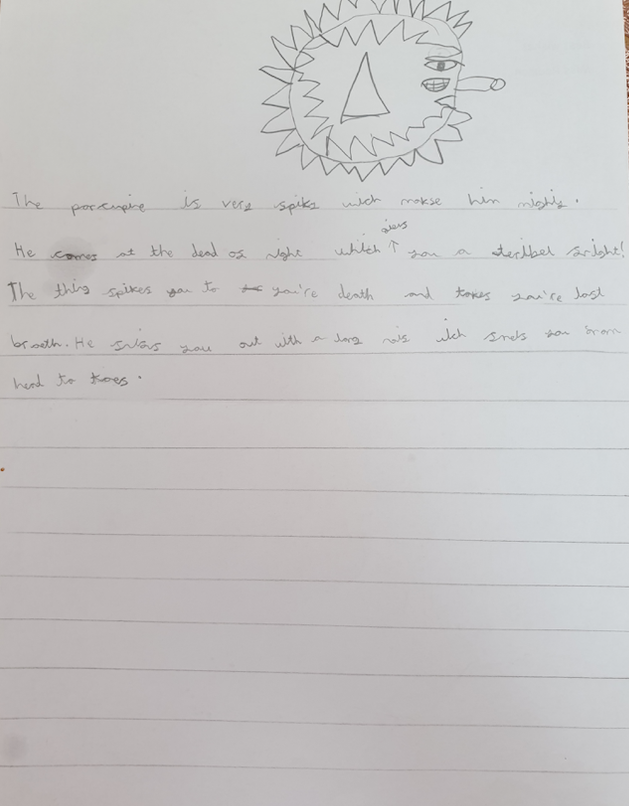 The porcupine is very spiky wich makse him mighty.
He comes at the dead of night which gives you a steribel fright!
The thing spikes you to you're death and takes you're last
breath. He you out with a long wich you from
head to toes.